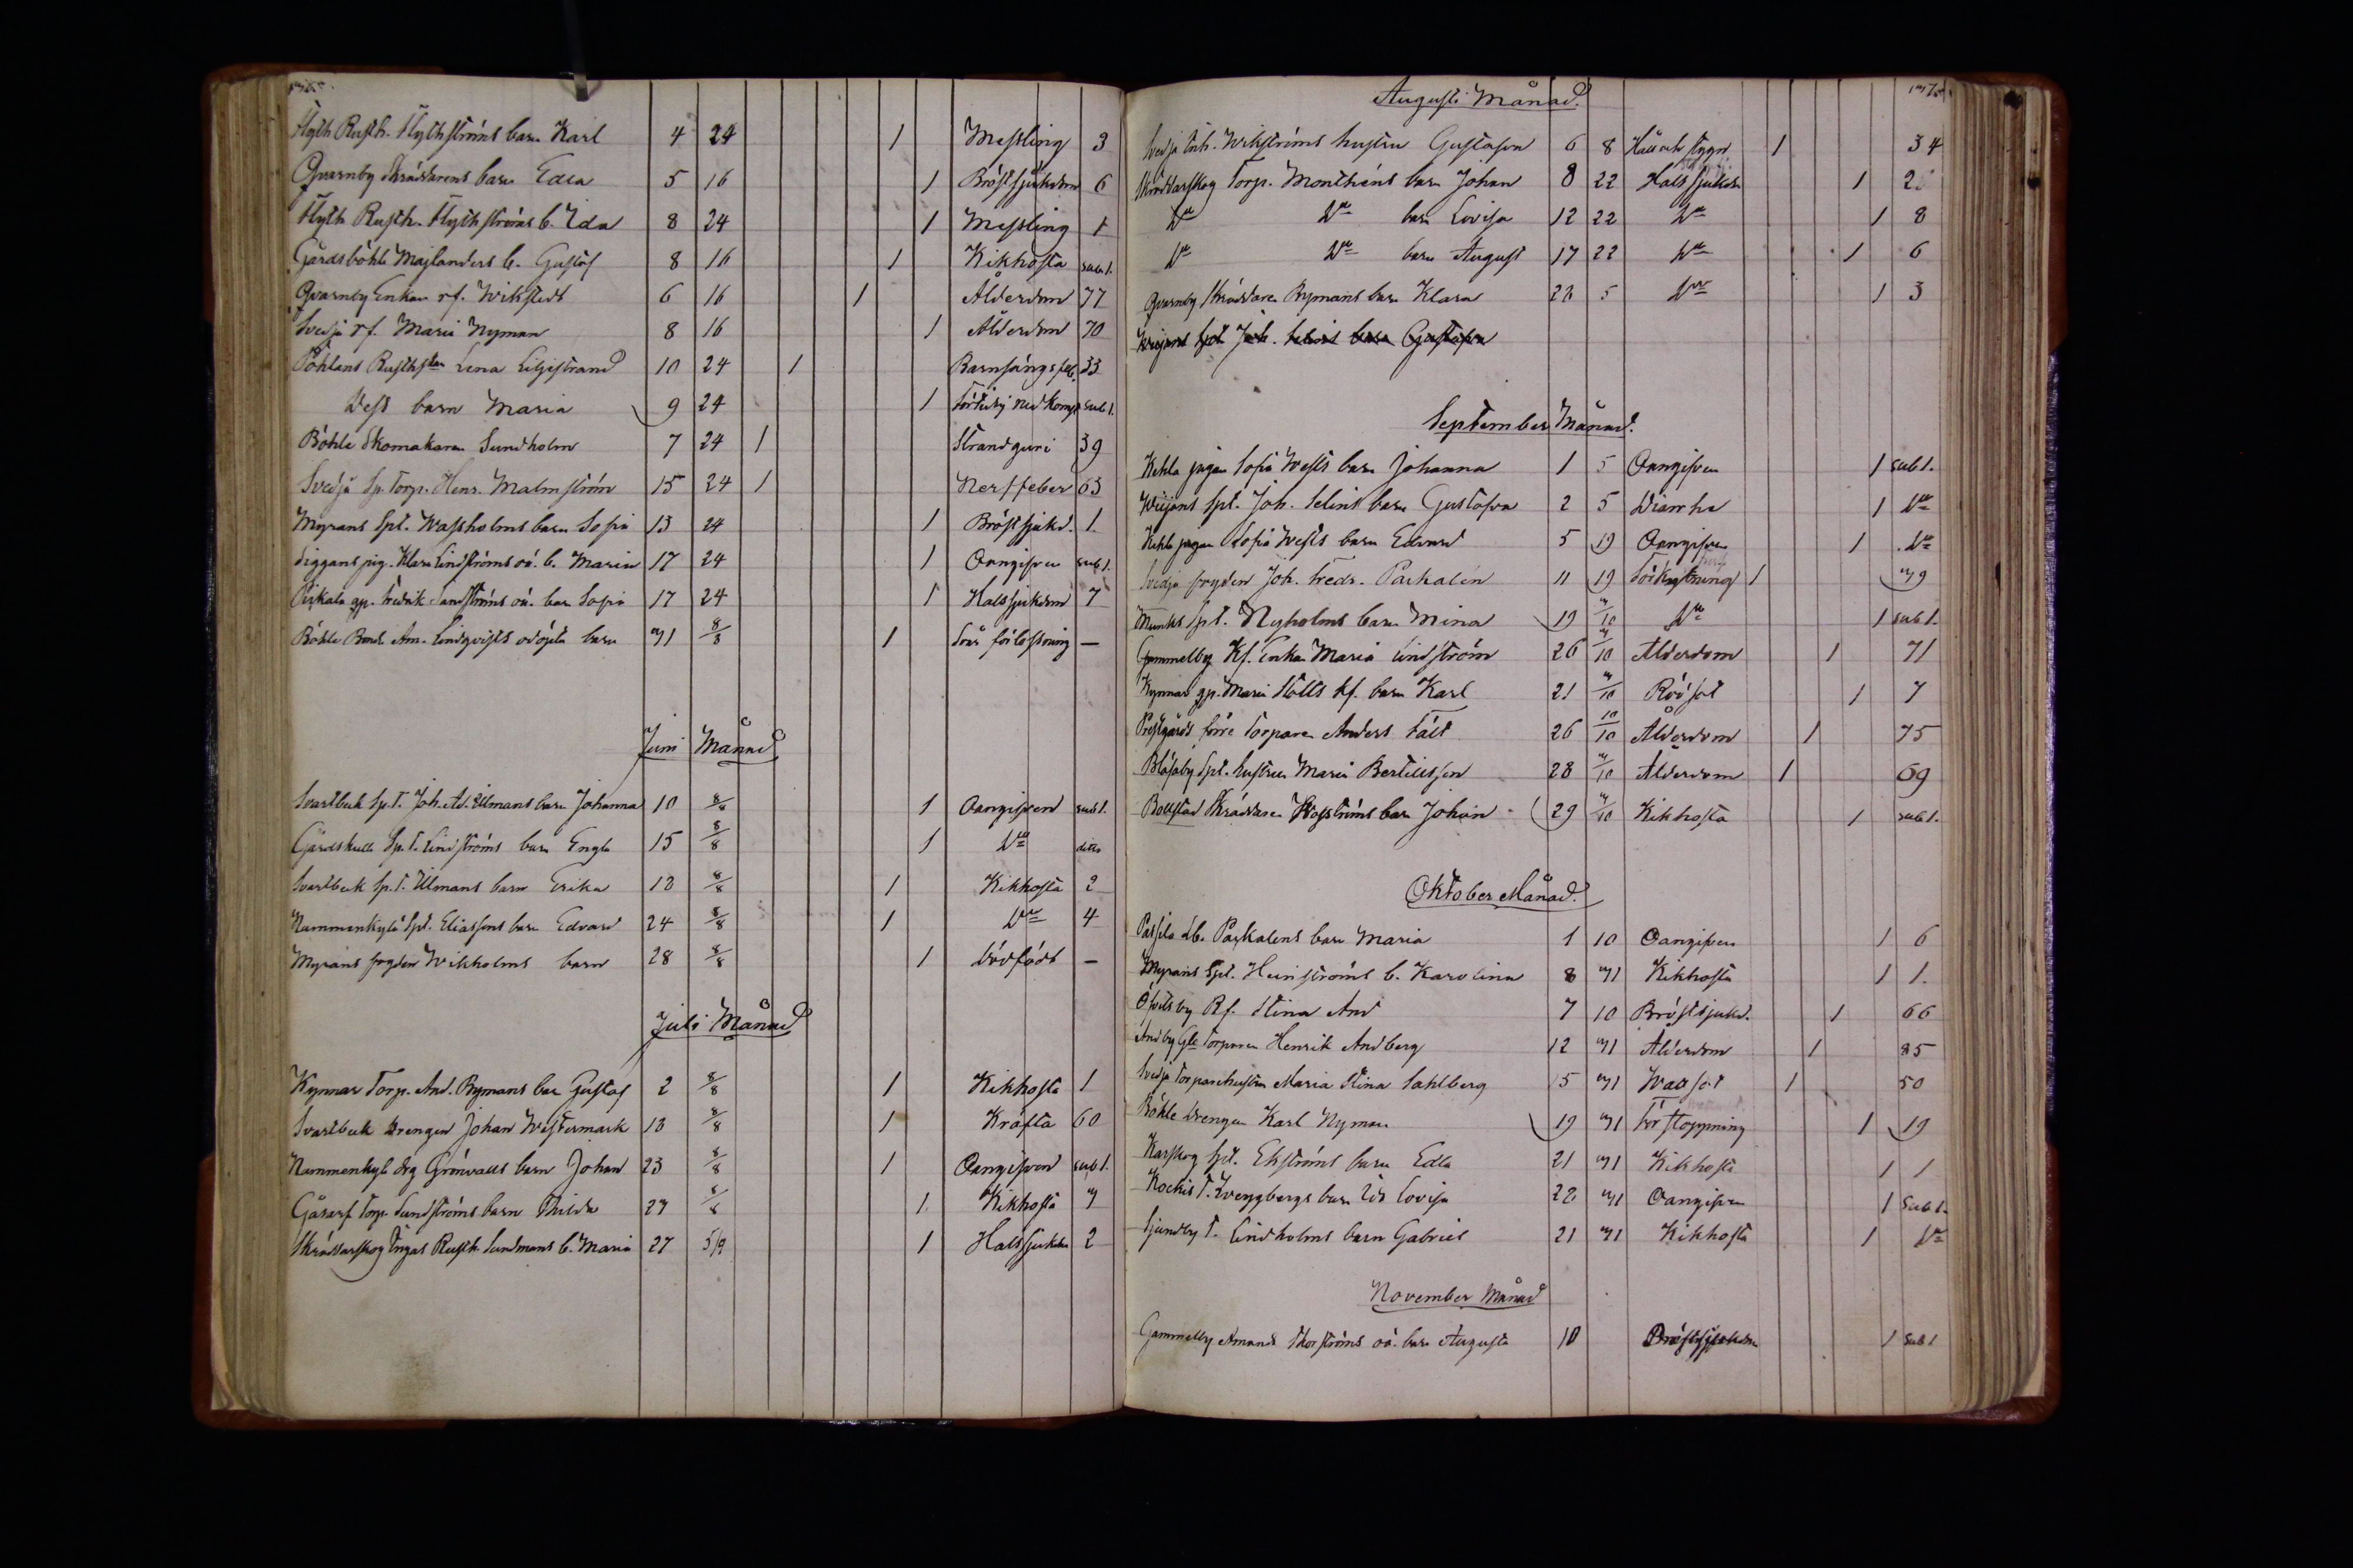 Flyth Rusth. Flythströms barn Karl 4 24 1 Messling 3
Qvarnby Skräddarens barn Edla 5 16 1 Bröstsjukdom 6
Flyth Rusth. Flythströms b. Ida 8 24 1 Messling 1
Gårdsböhle Majlanders b. Gustaf 8 16 1 Kikhosta sub 1.
Qvarnby Enkan rf. Wikstedt 6 16 1 Ålderdom 77
Svedja rf. Maria Nyman 8 16 1 Ålderdom 70
Pöhlans Lena Liljestrand 10 24 1 Barnsängsfeb. 33
Dess barn Maria 9 24 1 Förtidig nedkomst sub 1.
Böhle Skomakaren Sundholm 7 24 1 Strandguri 39
Svedja Sp. Torp. Henr. Malmström 15 24 1 Nerffeber 63
Myrans Spt. Wassholms barn Sofia 13 24 1 Bröstsjukd. 1.
Siggans pig. Klara Lindströms oä. b. Maria 17 24 1 Oangifven sub 1.
Pickala gp. Fredrik Sandströms oä. barn Sofia 17 24 1 Halssjukdom 7
Böhle Bond. And. Lindqvists odöpta barn 8/8 1 Svår förlossning —
Juni Månad
Svartbeck Sp.T. Joh. Ad. Ullmans barn Johanna 10 8/8 1 Oangifven sub 1.
Gårdskulla Sp.T. Lindströms barn Engla 15 8/8 1 Do dito
Svartbeck Sp.T. Ullmans barn Erika 18 8/8 1 Kikhosta 2
Nummenkylä Spt. Eliassons barn Edvard 24 8/8 1 Do 4
Myrans fogden Wikholms barn 28 8/8 1 Dödfödt —
Juli Månad
Kynnar Torp. And. Rymans barn Gustaf 2 8/8 1 Kikhosta 1
Svartbeck Drengen Johan Westermark 18 8/8 1 Kräfta 60
Nummenkylä drg Grönvalls barn Johan 23 8/8 1 Oangifven sub 1.
Torp. Sundströms barn Hilda 27 8/8 1 Kikhosta 7
Skräddarskog Ingas Rusth. Sundmans b. Maria 27 5/9 1 Halssjukdom 2
Augusti Månad.
Svedja Inh. Wikströms hustru Gustafva 6 8 Håll och stygn 1 34
Skräddarskog Torp. Monthéns barn Johan 8 22 Halssjukdom 1
Do Do barn Lovisa 12 22 Do 1 8
Do Do barn August 17 22 Do 1 6
Qvarnby Skräddaren Rymans barn Klara 28 5 Do 1 3
Spt. Joh. Selins barn Gustafva
September Månad.
Kehla pigan Sofia Wests barn Johanna 1 5 Oangifven 1 sub 1.
Spt. Joh. Selins barn Gustafva 2 5 Diarrhe 1 Do
Kehla pigan Sofia Wests barn Edvard 5 19 Oangifven 1 Do
Svedja fogden Joh. Fredr. Paskalén 11 19 Förkylning 1
Munks Spt. Nyholms barn Mina 19 Do 1 sub 1.
Gammelby Kf. Enkan Maria Lindström 26 Ålderdom 1 71
Kynnar gp. Maria Stolts kf. barn Karl 21 Rödsot 1 7
Prestgårds förre Torparen Anders Fält 26 10/10 Ålderdom 1 75
Blåsaby Spt. hustru Maria Bertillsson 28 Ålderdom 1 69
Bollstad Skräddaren barn Johan 29 Kikhosta 1 sub 1.
Oktober Månad.
Passila Paskalens barn Maria 1 10 Oangifven 1 6
Myrans Spt. Heinströms b. Karolina 8 Kikhosta 1 1.
Öfvitsby Rf. Stina And 7 10 Bröstsjukd. 1 66
Andby Torparen Henrik Andberg 12 Ålderdom 1 85
Svedja Torparehustrun Maria Stina Sahlberg 15 Wattsot 1 50
Böhle Drengen Karl Nyman 19 Förstoppning 1 19
Karskog Spt. Ekströms barn Edla 21 Kikhosta 1 1
Kockis T. Tvengbergs barn Ida Lovisa 22 Oangifven 1 Sub 1.
Sjundby T. Lindholms barn Gabriel 21 Kikhosta 1 Do
November Månad
Gammelby Amanda Storströms oä. barn Augusta 10 Bröstsjukdom 1 sub 1